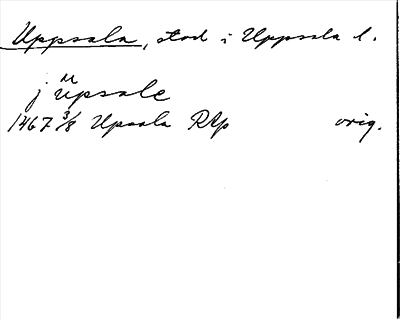 Uppsala, stad i Uppsala l.
j upsale
1467 3/8 Upsala RAp orig.